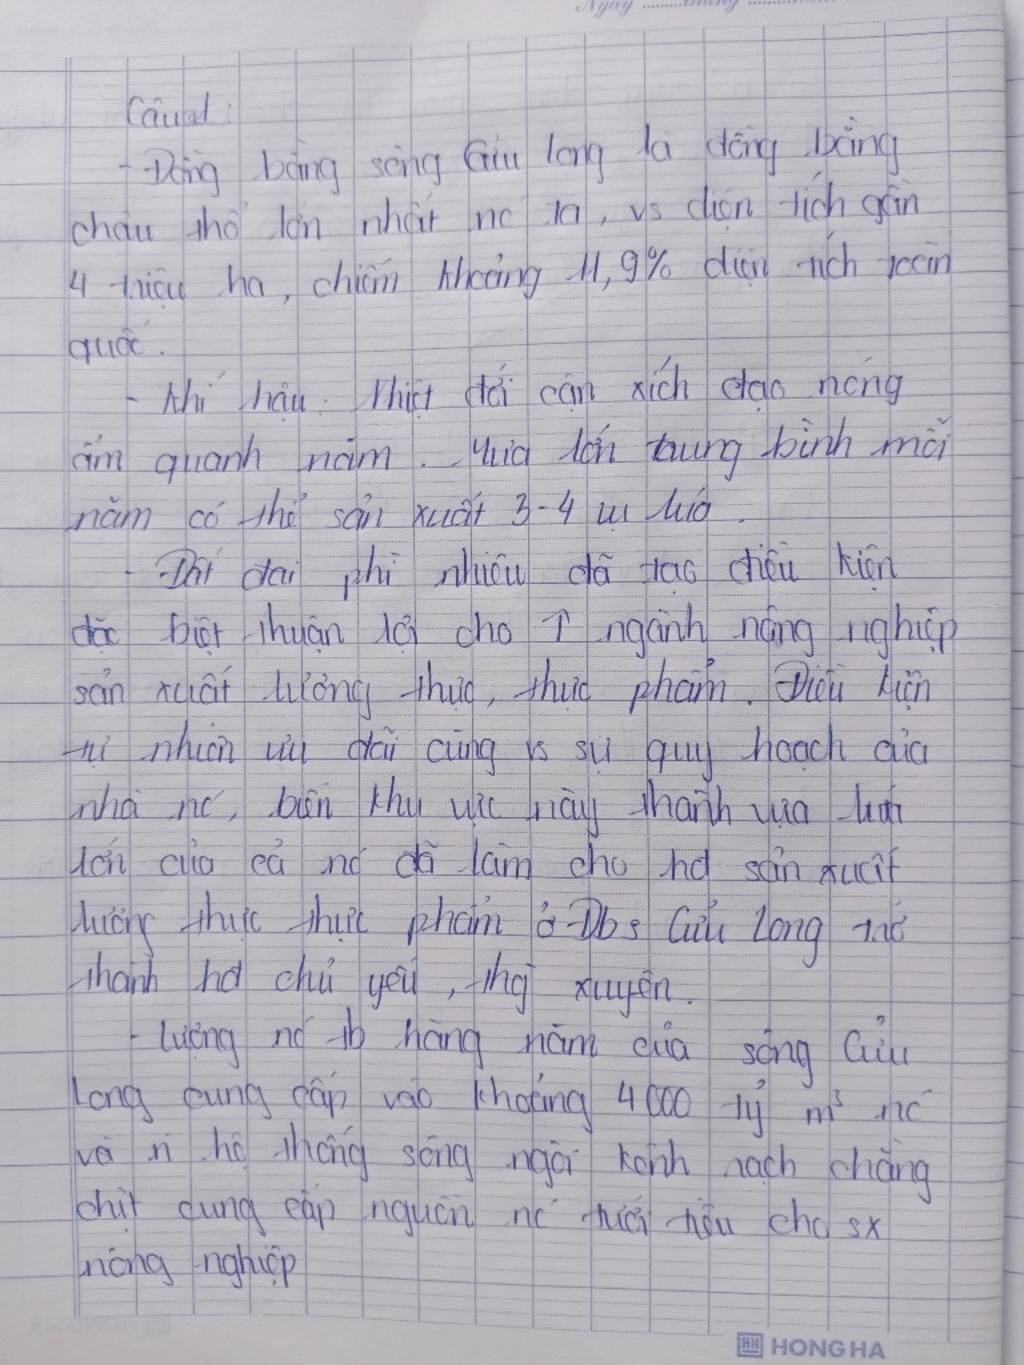 Ngày ........tháng ........
Câu 1:
- Đồng bằng sông Cửu long là đồng bằng
châu thổ lớn nhất nc ta, vs diện tích gần
4 triệu ha, chiếm khoảng 11,9% diện tích toàn
quốc.
- Khí hậu: Nhiệt đới cận xích đạo nóng
ẩm quanh năm. Mưa lớn trung bình mỗi
năm có thể sản xuất 3-4 vụ lúa.
- Đất đai phì nhiêu đã tạo điều kiện
đặc biệt thuận lợi cho ↑ ngành nông nghiệp
sản xuất lương thực, thực phẩm. Điều kiện
tự nhiên ưu đãi cùng vs sự quy hoạch của
nhà nc, biến khu vực này thành vựa lúa
lớn của cả nc đã làm cho hđ sản xuất
lương thực thực phẩm ở Đbs Cửu Long trở
thành hđ chủ yếu, thg xuyên.
- Lượng nc tb hàng năm của sông Cửu
Long cung cấp vào khoảng 4000 tỷ m³ nc
và n hệ thống sông ngòi kênh rạch chằng
chịt cung cấp nguồn nc tưới tiêu cho sx
nông nghiệp
HONG HA